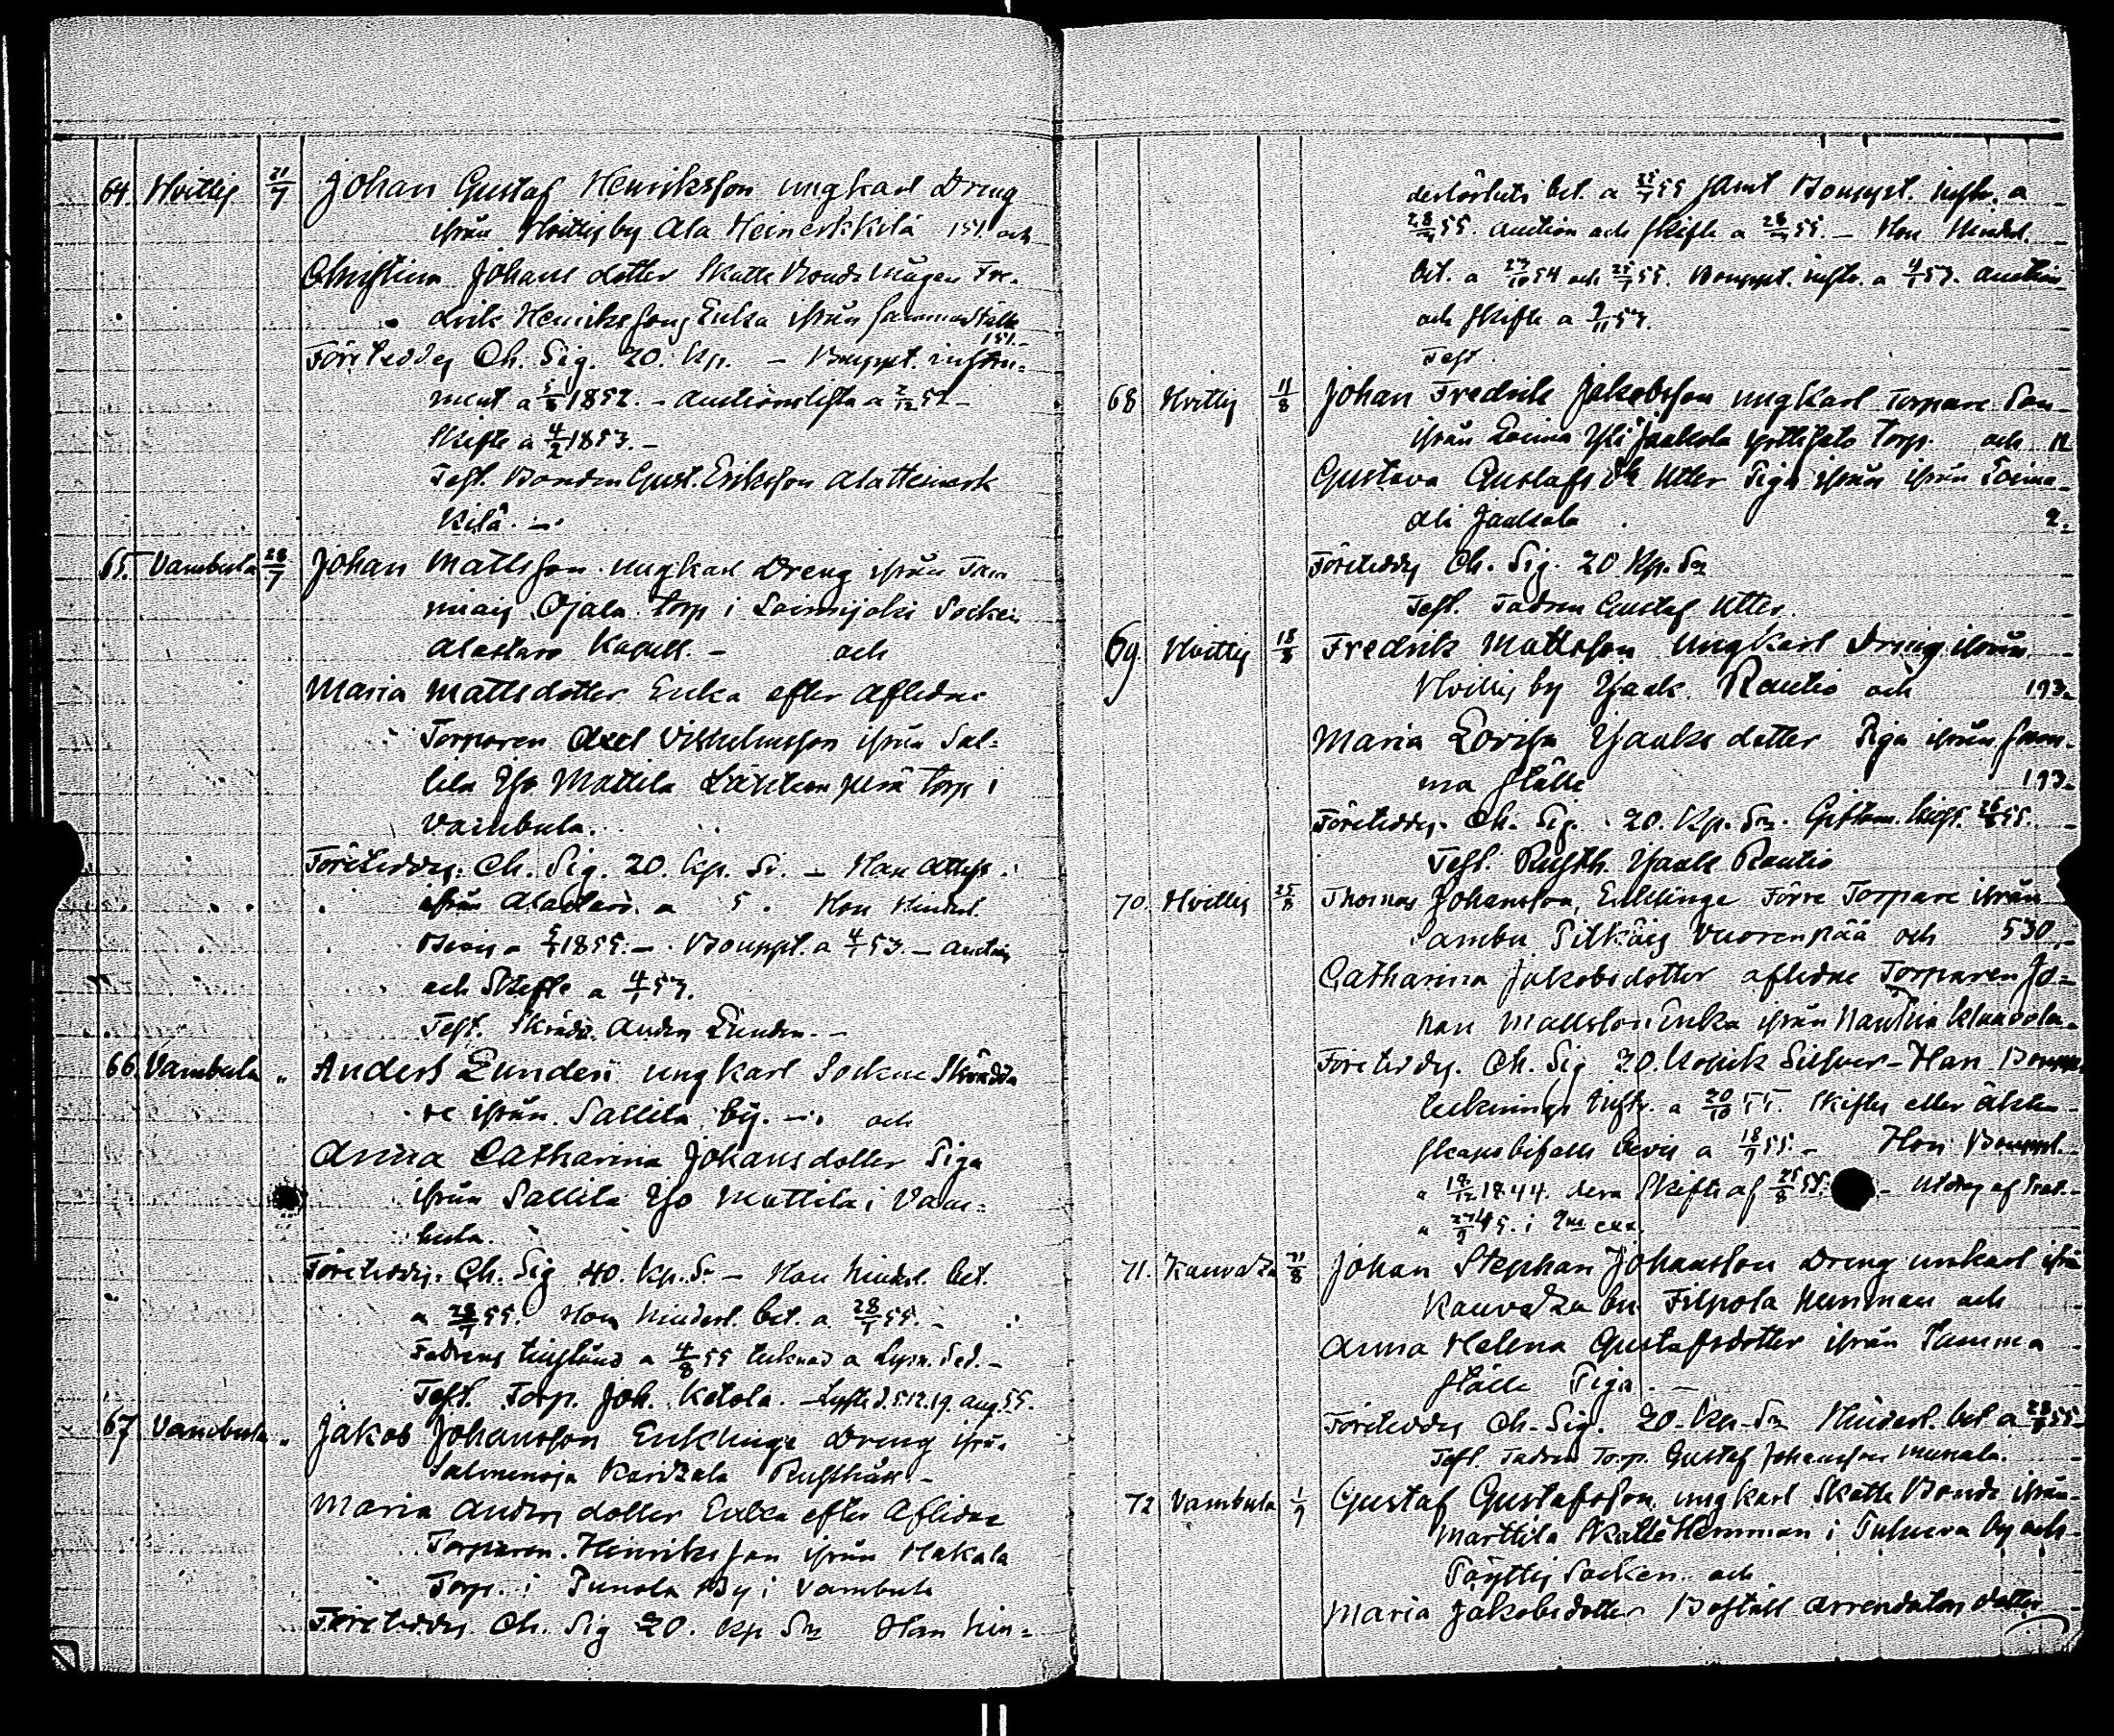 64. Hvittis 21/7 Johan Gustaf Henriksson ungkarl Dreng
ifrån Hvittisby Ala Heinerkkilä 151. och
Christina Johans dotter Skatte Bonde Mågen Fre-
drik Henrikssons Enka ifrån sammaställe
151.-
Företeddes Ch. Sig. 20. Kp. - Bouppt. instru-
ment a 5/8 1852. - Auctionslista a 2/12 52 -
Skifte a 4/2 1853. -
Test. Bonden Gust. Eriksson Ala Heinerk
kilä. -
65. Vambula 28/7 Johan Mattsson ungkarl Dreng ifrån Tam
miais Ojala torp i Loimijoki Socken
Alastaro Kapell. - och
Maria Mattsdotter Enka efter Aflidne
Torparen Axel Vilhelmsson ifrån Sal-
lila Iso Mattila torp i
Vambula.
Företeddes: Ch. Sig. 20. Kp. Sr. - Han Attest
ifrån Alastaro. a 5. Hon Hinderl.
Bevis a 1855. - Bouppt. a 4/1 53. - Auction
och Skifte a 4/1 53.
Test. Skrädd. Anders Lunden. -
66. Vambula " Anders Lunden ungkarl Sockne Skrädda
re ifrån Sallila by. - och
Anna Catharina Johansdotter Piga
ifrån Sallila Iso Mattila i Vam-
bula.
Företeddes: Ch. Sig 40. Kp. Sr - Han hinderl. bet.
a 28/7 55. Hon hinderl. bet. a 28/7 55. -
Fadrens tillstånd a 4/8 55 tecknad a Lysn. Sed. -
Test. Torp. Joh. Ketola. - Lyste d. 5. 12. 19. Aug. 55.
67 Vambula " Jakob Johansson Enklinge Dreng ifrån
Salmenoja Karikala Rusthåll -
Maria Anders dotter Enka efter Aflidne
Torparen Henriksson ifrån Makala
Torp. i Punola By i Vambula
Företeddes Ch. Sig 20. Kp Sr Han hin-
derlöshets bet. a 28/7 55 samt Bouppt. instr. a
28/7 55. Auction och skifte a 28/7 55. - Hon Hinderl.
bet. a 29/10 54 och 28/7 55. Bouppt. instr. a 53. Auction
och skifte a 9/11 53.
Test.
68 Hvittis 11/8 Johan Fredrik Jakobsson ungkarl Torpare Son
ifrån Loima Yli Jaakola torp. och 12
Gustava Gustafs dr Utter Piga ifrån ifrån Loima
Ali Jaakola 2.
Företeddes Ch. Sig. 20 Kp. Sr
Test. Fadren Gustaf Utter.
69 Hvittis 18/8 Fredrik Mattsson Ungkarl Dreng ifrån
Hvittis by Isaak Rautio och 193.
Maria Lovisa Isaaks dotter Piga ifrån sam-
ma ställe 193.
Företeddes. Ch. Sig. 20. Kp. Sr. Giftom. tillst. 26/8 55.
Test. Rusth. Isaak Rautio
70. Hvittis 25/8 Thomas Johansson, Enklinge Förre Torpare ifrån
Sambu Pitkäis Vuorenpää och 530.
Catharina Jakobsdotter aflidne Torparen Jo-
han Mattsson Enka ifrån Hanttia klaavola
Företeddes. Ch. Sig 20. Kopek Silfver - Han Boupp
tecknings Instr. a 20/10 55. Skiftes eller äkten
skapsbifalls bevis a 18/9 55. - Hon Bouppt.
a 12/12 1844. dera Skifte af 25/8 55. - Utdrag af
a 45. i 2ne ex.
71. Kauvatza 21/8 Johan Stephan Johansson Dreng unkarl ifrån
Kauvatza by Filpola Hemman och
Anna Helena Gustafsdotter ifrån Samma
ställe Piga. -
Företeddes Ch. Sig. 20. Kp. Sr Hinderl. bet a 55
Test. Fadren Torp. Gustaf Johansson
72 Vambula 1/9 Gustaf Gustafsson ungkarl Skatte Bonde ifrån
Marttila Skatte Hemman i by och
Pöyttis Socken och
Maria Jakobsdotter Boställ Arrendators dotter